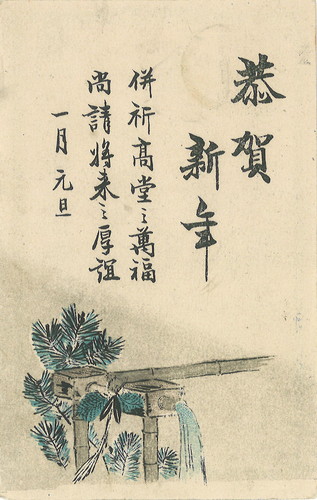 恭賀
新年
併祈高堂之萬福
尚請将来之厚誼
一月元旦